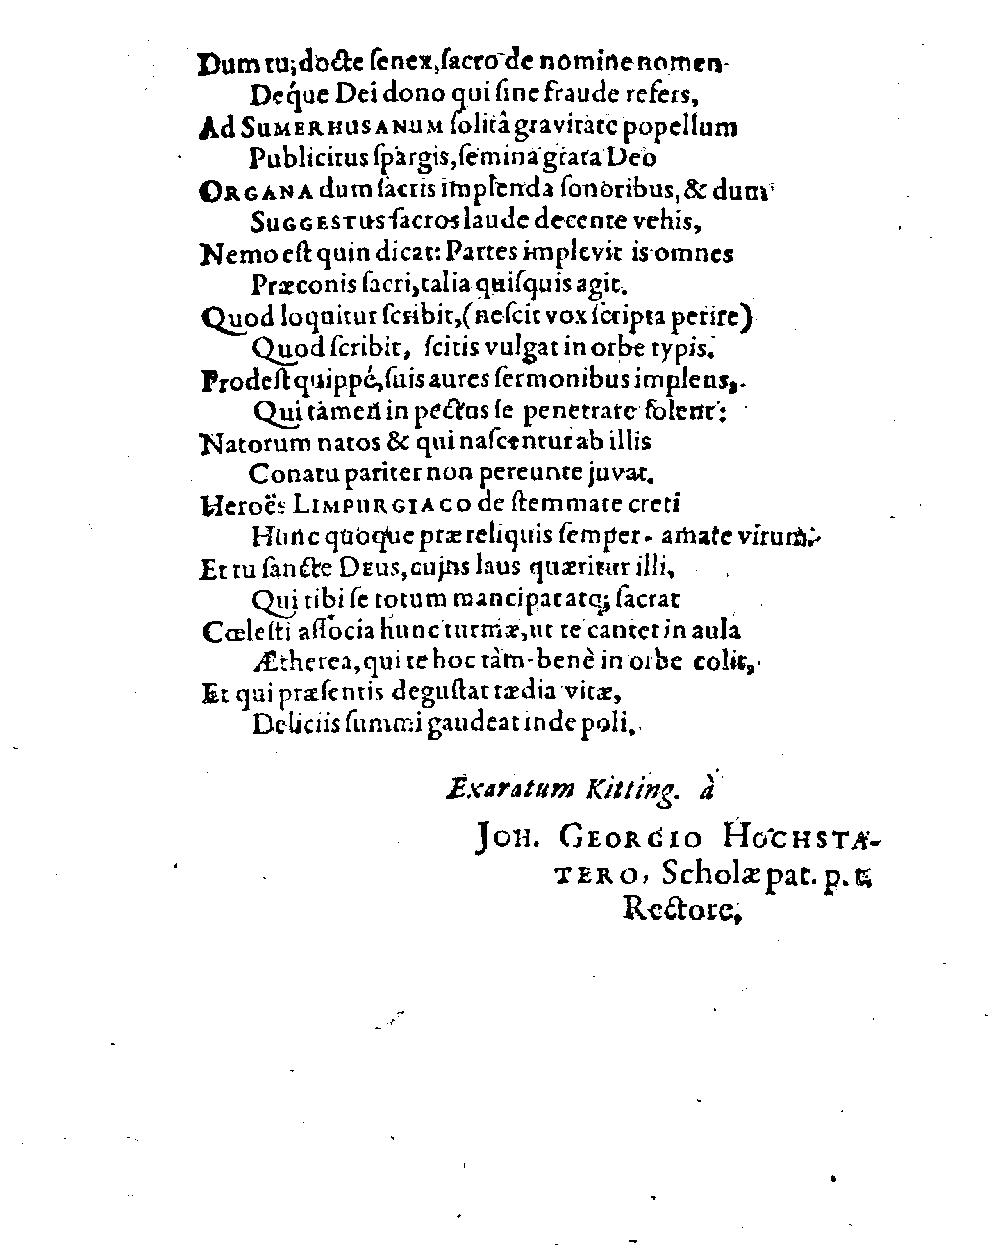 Dum tu, docte ſenex, ſacro de nomine nomen
Deque Dei dono qui ſine fraude refers,
Ad SUMERHUSANUM ſolitâ gravitate popellum
Publicitus ſpargis, ſemina grata Deo
ORGANA dum ſacris implenda ſonoribus, & dum
SUGGESTUS ſacros laude decente vehis,
Nemo eſt quin dicat: Partes implevit is omnes
Præconis ſacri, talia quiſquis agit.
Quod loquitur ſcribit, (neſcit vox ſcripta perire)
Quod ſcribit, ſcitis vulgat in orbe typis.
Prodeſt quippe, ſuis aures ſermonibus implens,
Qui tamen in pectus ſe penetrare ſolent:
Natorum natos & qui naſcentur ab illis
Conatu pariter non pereunte juvat.
Heroës LIMPURGIACO de ſtemmate creti
Hunc quoque præ reliquis ſemper amate virum:
Et tu ſancte DEUS, cujus laus quæritur illi,
Qui tibi ſe totum mancipat atq; ſacrat
Cœleſti aſſocia hunc turmæ, ut te cantet in aula
Ætherea, qui te hoc tàm benè in orbe colit,
Et qui præſentis deguſtat tædia vitæ,
Deliciis ſummi gaudeat inde poli.
Exaratum Kitting. à
JOH. GEORGIO HOCHSTA-
TERO, Scholæ pat. p. t.
Rectore,